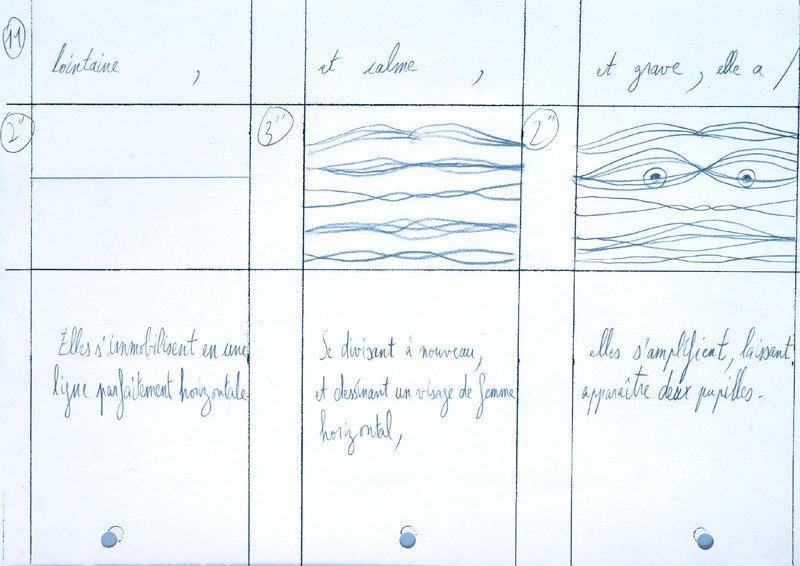 11
lointaine ,
et calme ,
et grave, elle a /
2"
3"
2"
Elles s'immobilisent en une
ligne parfaitement horizontale.
Se divisant à nouveau,
et dessinant un visage de femme
horizontal,
elles s'amplifient, laissant
apparaître deux pupilles.